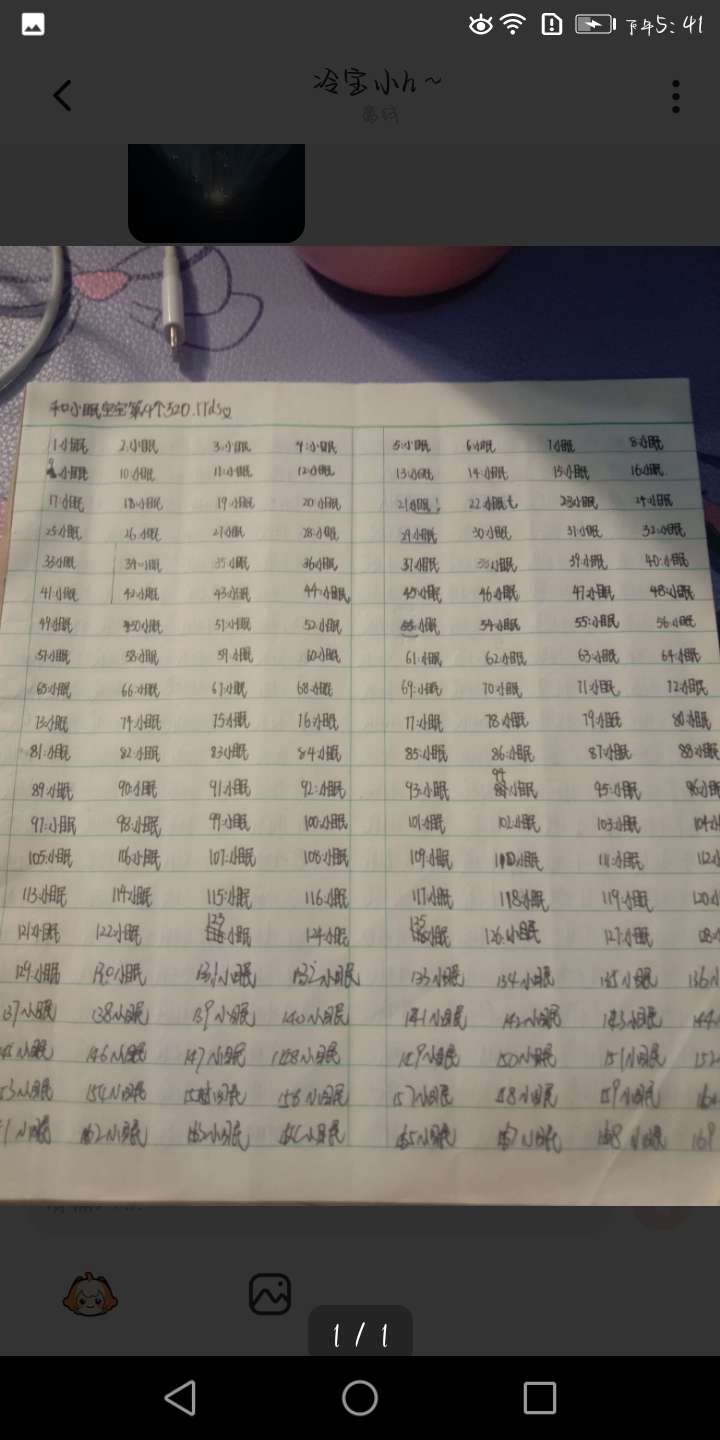 下午5:41
冷宝小h~
离线
和小眠宝宝第4个520.
1小眠 2.小眠 3.小眠 4:小眠 5:小眠 6小眠 7小眠 8小眠
9小眠 10小眠 11:小眠 12小眠 13小眠 14小眠 15小眠 16小眠
17小眠 18小眠 19小眠 20小眠 21小眠 22小眠 23小眠 24小眠
25小眠 26.小眠 27小眠 28小眠 29小眠 30小眠 31小眠 32:小眠
33小眠 34小眠 35小眠 36小眠 37小眠 38小眠 39小眠 40:小眠
41:小眠 42小眠 43小眠 44:小眠 45小眠 46小眠 47小眠 48小眠
49小眠 50小眠 51:小眠 52.小眠 53:小眠 54小眠 55:小眠 56小眠
57小眠 58小眠 59.小眠 60小眠 61:小眠 62小眠 63:小眠 64小眠
65小眠 66:小眠 67小眠 68小眠 69:小眠 70小眠 71小眠 72小眠
73小眠 74小眠 75小眠 76小眠 77:小眠 78小眠 79小眠 80小眠
81:小眠 82:小眠 83小眠 84小眠 85:小眠 86:小眠 87小眠 88小眠
89小眠 90小眠 91小眠 92:小眠 93小眠 94小眠 95:小眠 96小眠
97:小眠 98小眠 99:小眠 100小眠 101小眠 102小眠 103小眠 104小
105小眠 106小眠 107:小眠 108小眠 109小眠 110小眠 111:小眠 112小
113小眠 114小眠 115:小眠 116小眠 117小眠 118小眠 119小眠 120小
121小眠 122小眠 123小眠 124小眠 125小眠 126:小眠 127小眠
129小眠 130小眠 131小眠 132小眠 133小眠 134小眠 135小眠 136小
37小眠 138小眠 139小眠 140小眠 141小眠 142小眠 143小眠 144小
小眠 146小眠 147小眠 148小眠 149小眠 150小眠 151小眠 152
53小眠 154小眠 155小眠 156小眠 157小眠 158小眠 159小眠
1小眠 162小眠 163小眠 164小眠 165小眠 167小眠 168小眠 169
1/1